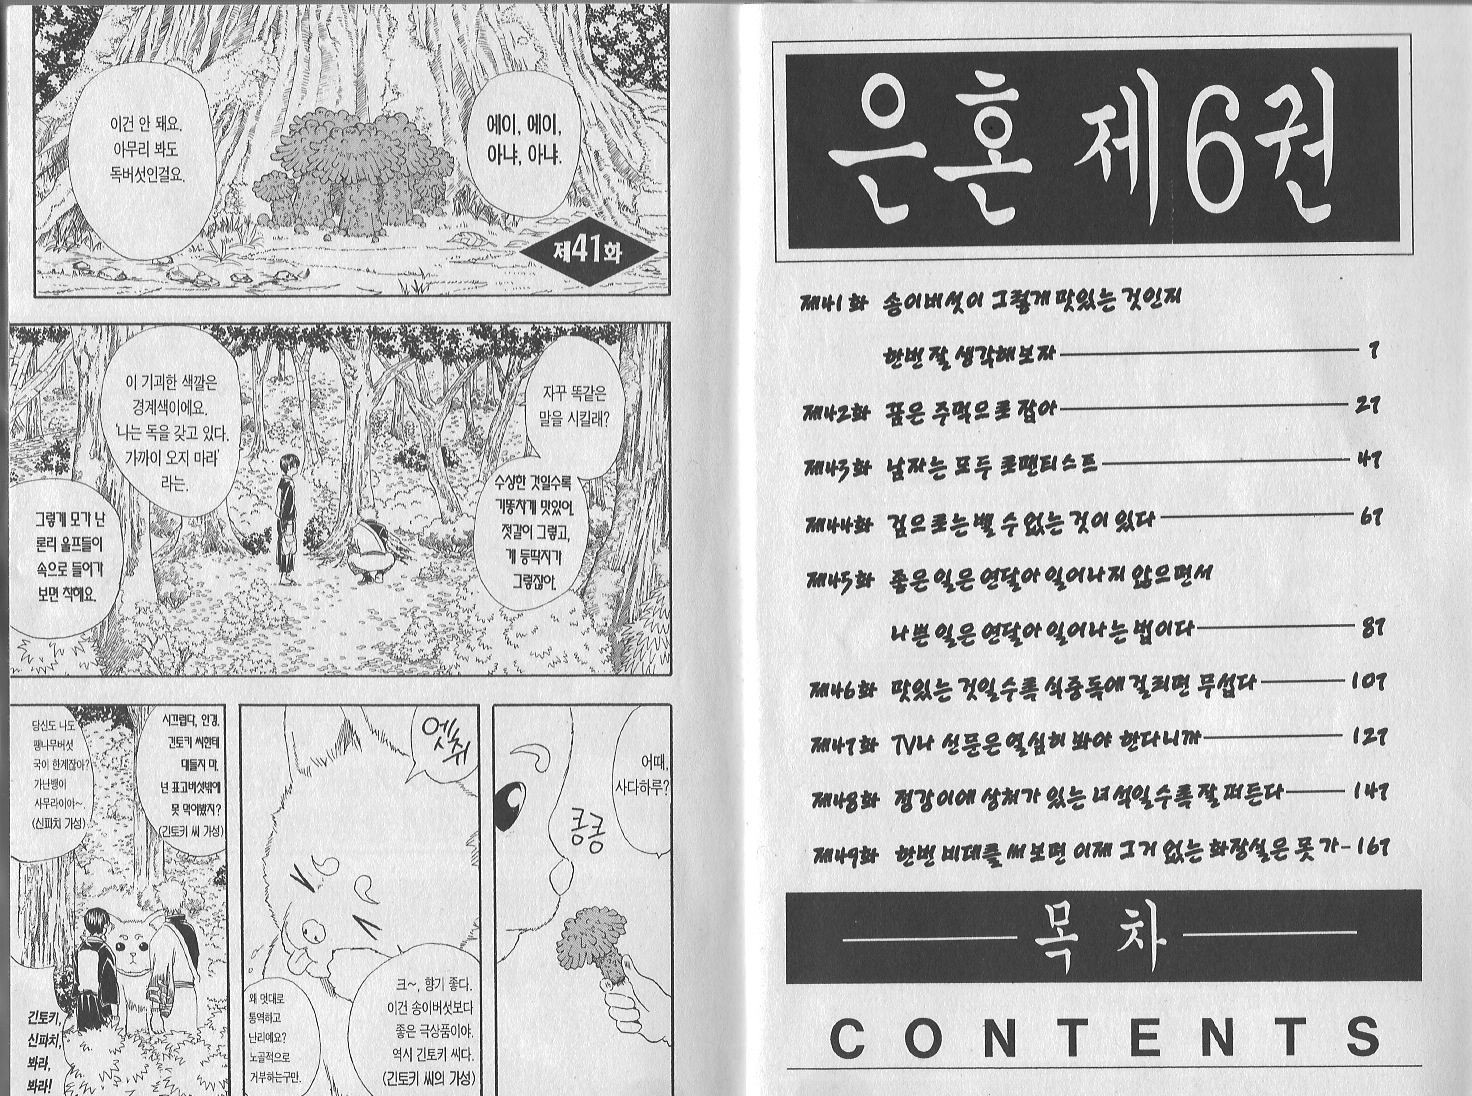 은혼 제6권
제41화 송이버섯이 그렇게 맛있는 것인지
한번 잘 생각해보자 7
제42화 품은 주먹으로 잡아 27
제43화 남자는 모두 로맨티스트 47
제44화 검으로는 벨 수 없는 것이 있다 67
제45화 좋은 일은 연달아 일어나지 않으면서
나쁜 일은 연달아 일어나는 법이다 87
제46화 맛있는 것일수록 식중독에 걸리면 무섭다 107
제47화 TV나 신문은 열심히 봐야 한다니까 127
제48화 정강이에 상처가 있는 녀석일수록 잘 떠든다 147
제49화 한번 비데를 써보면 이제 그거 없는 화장실은 못 가 167
목 차
CONTENTS
에이, 에이,
아냐, 아냐.
이건 안 돼요.
아무리 봐도
독버섯인걸요.
제41화
자꾸 똑같은
말을 시킬래?
수상한 것일수록
기똥차게 맛있어.
젓갈이 그렇고,
게 등딱지가
그렇잖아.
이 기괴한 색깔은
경계색이에요.
'나는 독을 갖고 있다.
가까이 오지 마라'
라는.
그렇게 모가 난
론리 울프들이
속으로 들어가
보면 착해요.
어때,
사다하루?
킁킁
엣취
크~, 향기 좋다.
이건 송이버섯보다
좋은 극상품이야.
역시 긴토키 씨다.
(긴토키 씨의 가성)
왜 멋대로
통역하고
난리예요?
노골적으로
거부하는구만.
시끄럽다, 안경.
긴토키 씨한테
대들지 마.
넌 표고버섯밖에
못 먹어봤지?
(긴토키 씨 가성)
당신도 나도
팽나무버섯
국이 한계잖아?
가난뱅이
사무라이야~
(신파치 가성)
긴토키,
신파치,
봐라,
봐라!